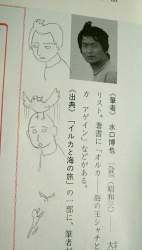 《筆者》水口博也
リスト。著書に「オルカ 海の王シャチと
カ アゲイン」などがある。
《出典》「イルカと海の旅」の一部に、筆者が